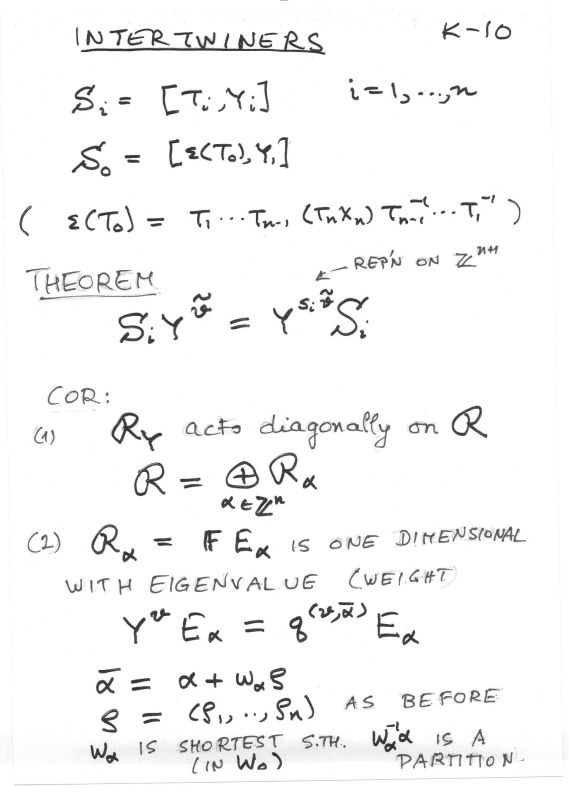 INTERTWINERS K-10
S_i = [T_i, Y_i] i=1,...,n
S_0 = [ε(T_0), Y_1]
( ε(T_0) = T_1 ... T_{n-1} (T_n X_n) T_{n-1}^{-1} ... T_1^{-1} )
← REP'N ON ℤ^{n+1}
THEOREM
S_i Y^{ṽ} = Y^{s_i ṽ} S_i
COR:
(1) R_Y acts diagonally on R
R = ⊕_{α∈ℤ^n} R_α
(2) R_α = F E_α IS ONE DIMENSIONAL
WITH EIGENVALUE (WEIGHT)
Y^v E_α = q^{(v,ᾱ)} E_α
ᾱ = α + w_α ρ
ρ = (ρ_1, .., ρ_n) AS BEFORE
w_α IS SHORTEST S.TH. w_α^{-1} α IS A
(IN W_0) PARTITION.